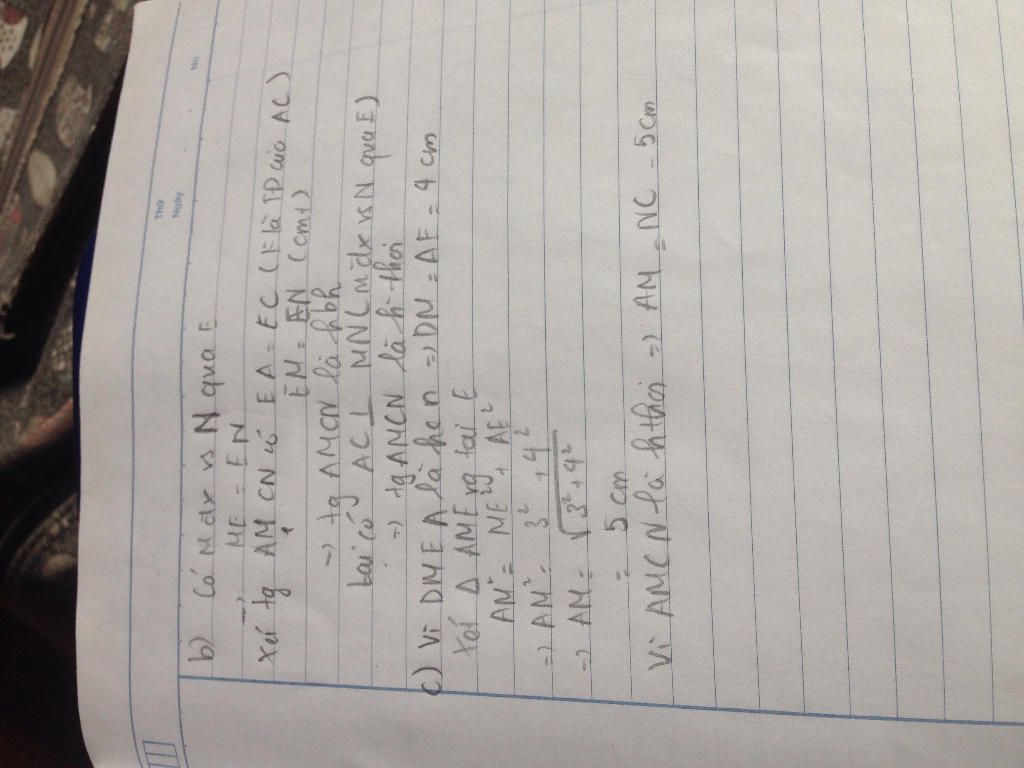 Thứ
Ngày
No.
b) Có M đx vs N qua E
=> ME = EN
Xét tg AMCN có EA = EC (E là TĐ của AC)
EM = EN (cmt)
=> tg AMCN là hbh
Lại có AC ⊥ MN (M đx vs N qua E)
=> tg AMCN là h thoi
c) Vì DMEA là hcn => DM = AE = 4 cm
Xét Δ AME vg tại E
AM² = ME² + AE²
=> AM² = 3² + 4²
=> AM = √3² + 4²
= 5 cm
Vì AMCN là h thoi => AM = NC = 5cm